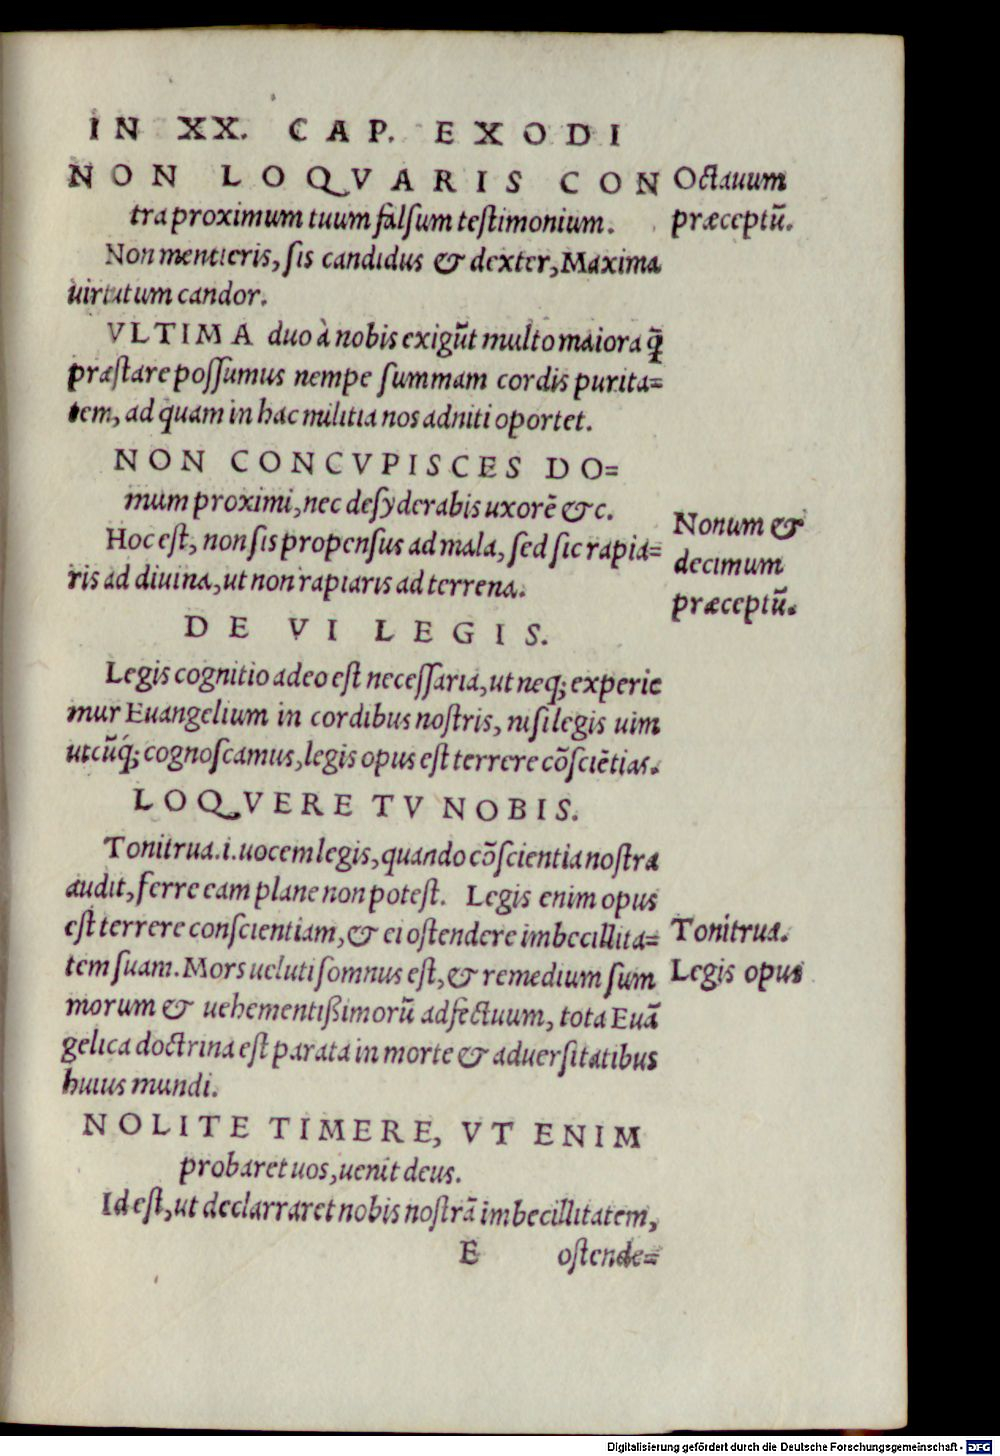 IN XX. CAP. EXODI
NON LOQVARIS CON
tra proximum tuum falsum testimonium.
Octauum
præceptũ.
Non mentieris, sis candidus & dexter, Maxima
uirtutum candor.
VLTIMA duo à nobis exigũt multo maiora q̃
præstare possumus nempe summam cordis purita=
tem, ad quam in hac militia nos adniti oportet.
NON CONCVPISCES DO=
mum proximi, nec desyderabis uxorẽ &c.
Hoc est, non sis propensus ad mala, sed sic rapia=
ris ad diuina, ut non rapiaris ad terrena.
Nonum &
decimum
præceptũ.
DE VI LEGIS.
Legis cognitio adeo est necessaria, ut neq; experie
mur Euangelium in cordibus nostris, nisi legis uim
utcũq́; cognoscamus, legis opus est terrere cõsciẽtias.
LOQVERE TV NOBIS.
Tonitrua .i. uocem legis, quando cõscientia nostra
audit, ferre eam plane non potest. Legis enim opus
est terrere conscientiam, & ei ostendere imbecillita=
tem suam. Mors ueluti somnus est, & remedium sum
morum & uehementißimorũ adfectuum, tota Euã
gelica doctrina est parata in morte & aduersitatibus
huius mundi.
Tonitrua.
Legis opus
NOLITE TIMERE, VT ENIM
probaret uos, uenit deus.
Id est, ut declarraret nobis nostrã imbecillitatem,
E ostende=
Digitalisierung gefördert durch die Deutsche Forschungsgemeinschaft - DFG